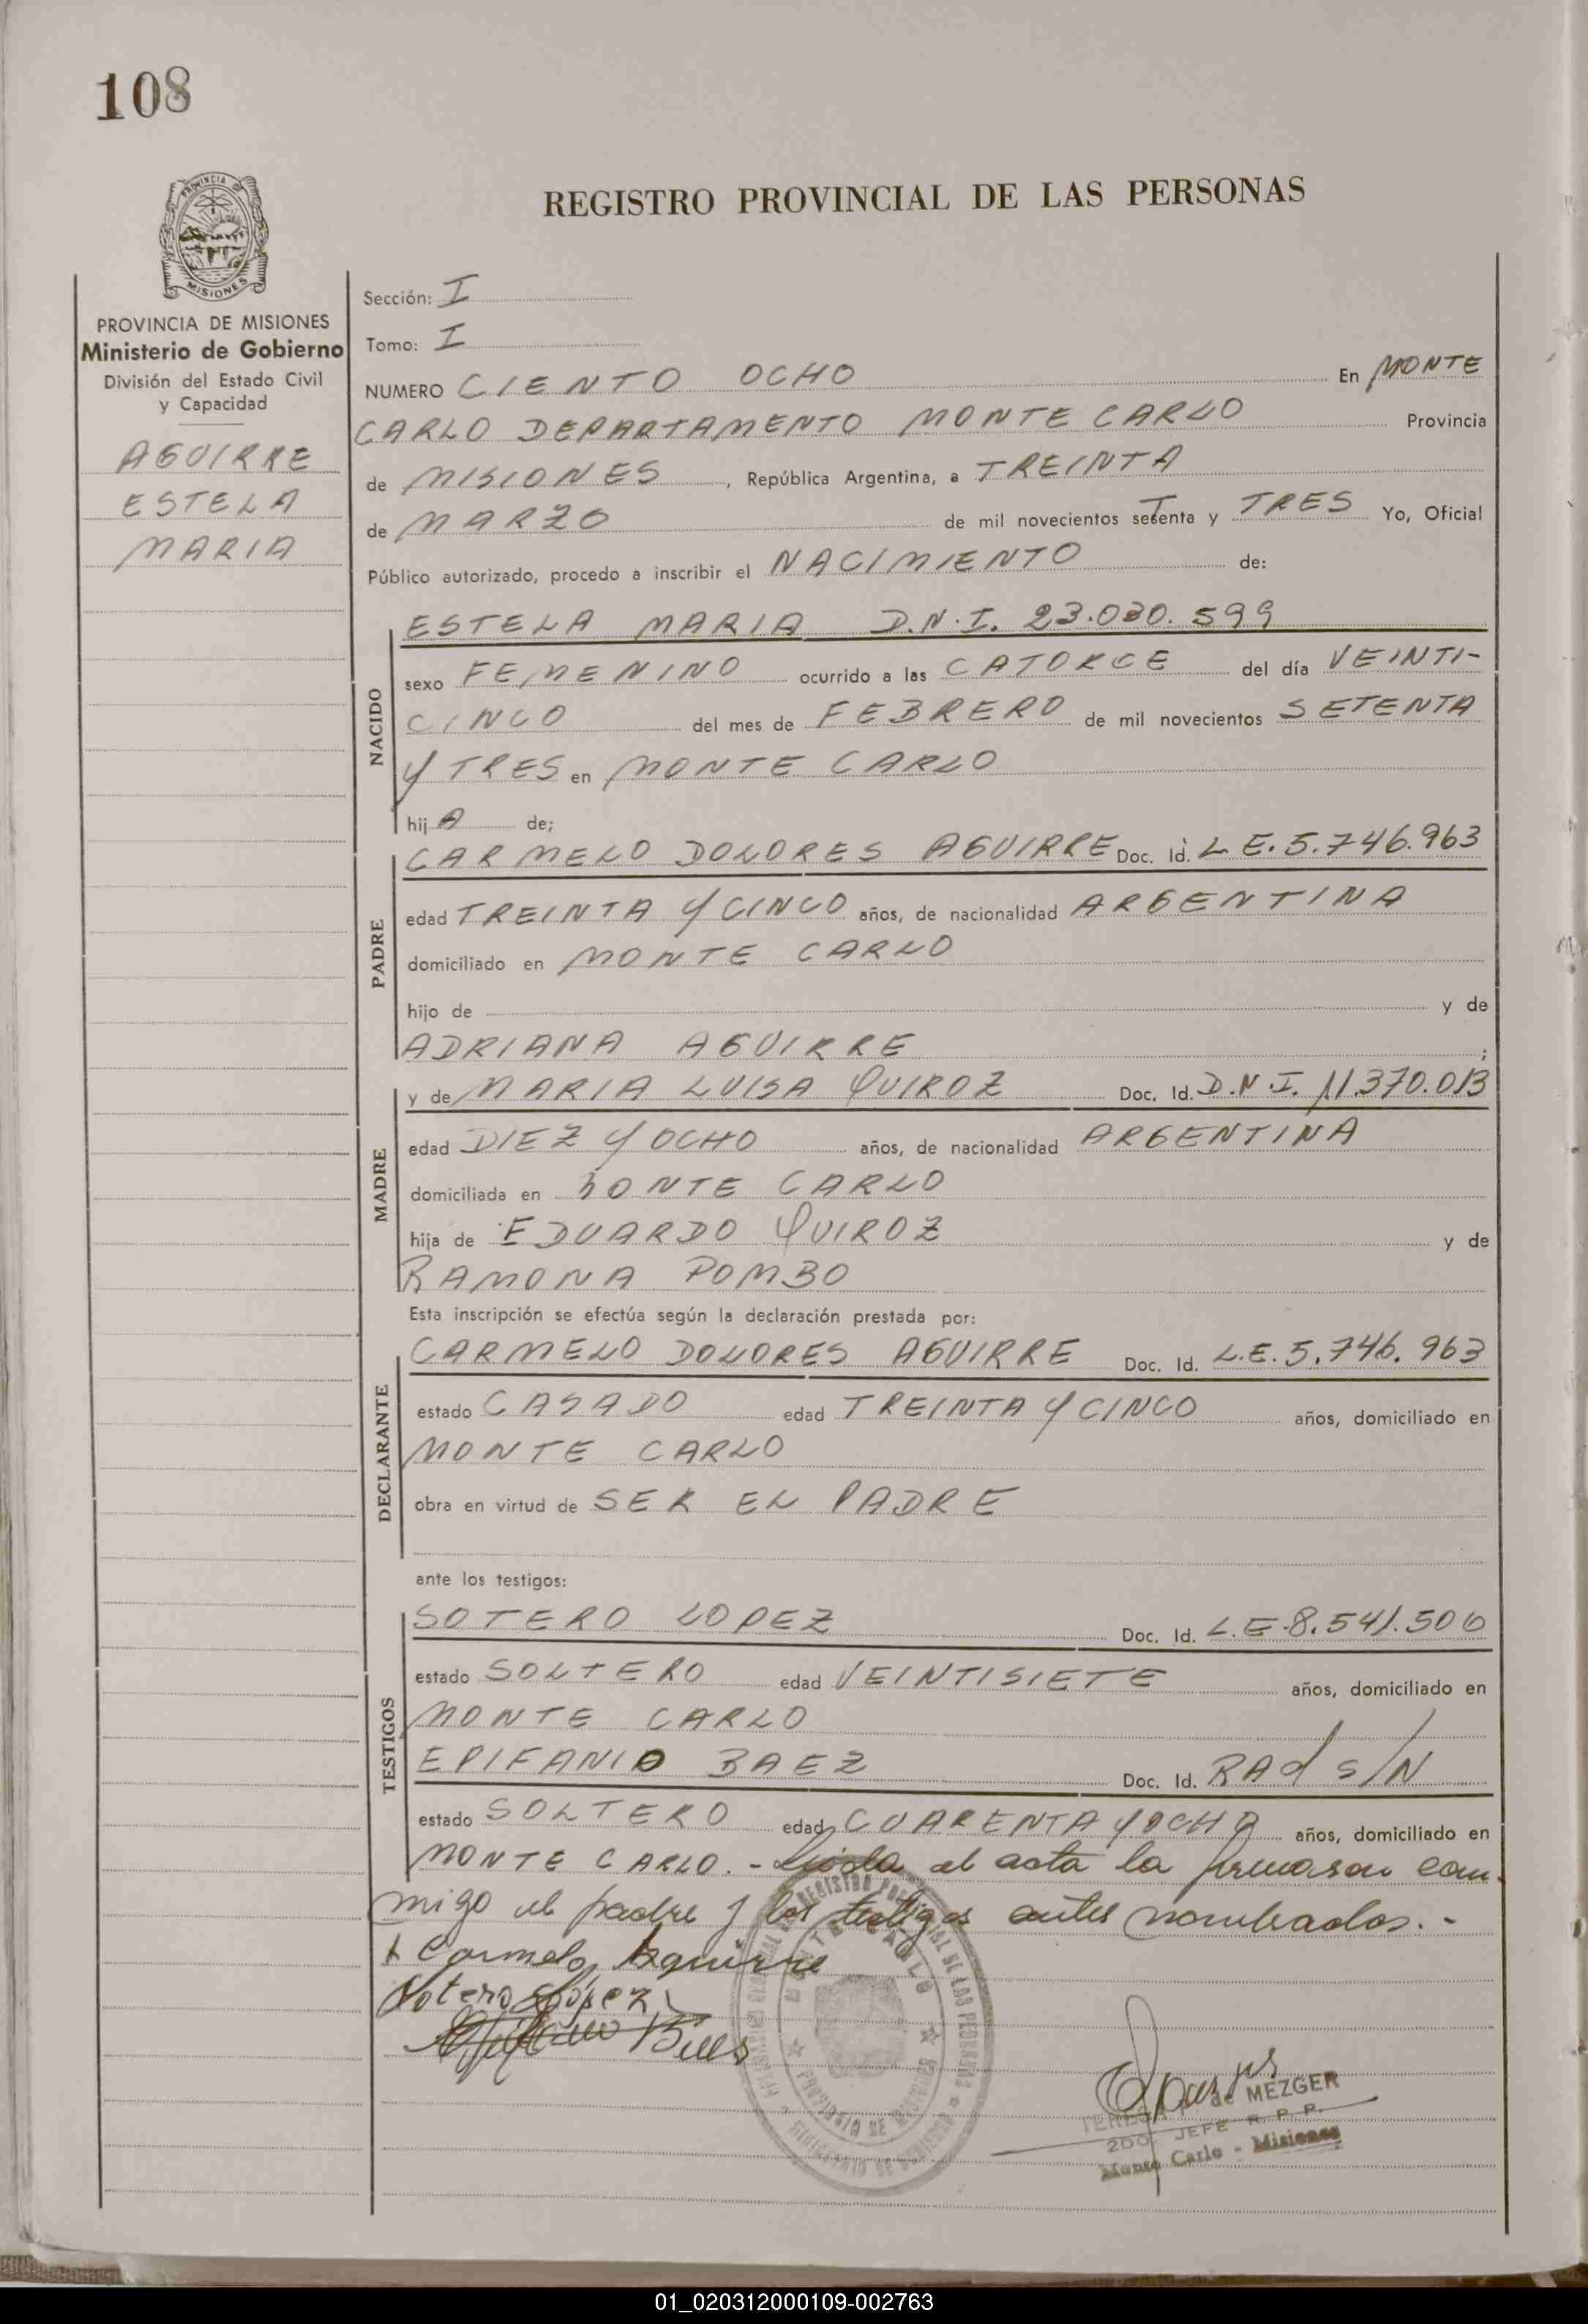 108
PROVINCIA DE
MISIONES
REGISTRO PROVINCIAL DE LAS PERSONAS
PROVINCIA DE MISIONES
Ministerio de Gobierno
División del Estado Civil
y Capacidad
AGUIRRE
ESTELA
MARIA
Sección: I
Tomo: I
NUMERO CIENTO OCHO En MONTE
CARLO DEPARTAMENTO MONTE CARLO Provincia
de MISIONES, República Argentina, a TREINTA
de MARZO de mil novecientos setenta y TRES Yo, Oficial
Público autorizado, procedo a inscribir el NACIMIENTO de:
NACIDO
ESTELA MARIA D.N.I. 23.030.599
sexo FEMENINO ocurrido a las CATORCE del día VEINTI-
CINCO del mes de FEBRERO de mil novecientos SETENTA
Y TRES en MONTE CARLO
hijA de;
PADRE
CARMELO DOLORES AGUIRRE Doc. Id. L.E. 5.746.963
edad TREINTA Y CINCO años, de nacionalidad ARGENTINA
domiciliado en MONTE CARLO
hijo de y de
ADRIANA AGUIRRE ;
MADRE
y de MARIA LUISA QUIROZ Doc. Id. D.N.I. 11.370.013
edad DIEZ Y OCHO años, de nacionalidad ARGENTINA
domiciliada en MONTE CARLO
hija de EDUARDO QUIROZ y de
RAMONA POMBO
Esta inscripción se efectúa según la declaración prestada por:
DECLARANTE
CARMELO DOLORES AGUIRRE Doc. Id. L.E. 5.746.963
estado CASADO edad TREINTA Y CINCO años, domiciliado en
MONTE CARLO
obra en virtud de SER EL PADRE
ante los testigos:
TESTIGOS
SOTERO LOPEZ Doc. Id. L.E. 8.541.506
estado SOLTERO edad VEINTISIETE años, domiciliado en
MONTE CARLO
EPIFANIO BAEZ Doc. Id. S/N
estado SOLTERO edad CUARENTA Y OCHO años, domiciliado en
MONTE CARLO. - Leida el acta la firmaron con-
migo el padre y los testigos antes nombrados. -
Carmelo Aguirre
Sotero López
MONTE CARLO
PROVINCIA DE MISIONES
MINISTERIO DE GOBIERNO
de MEZGER
2DO. JEFE R. P. P.
Monte Carlo - Misiones
01_020312000109-002763